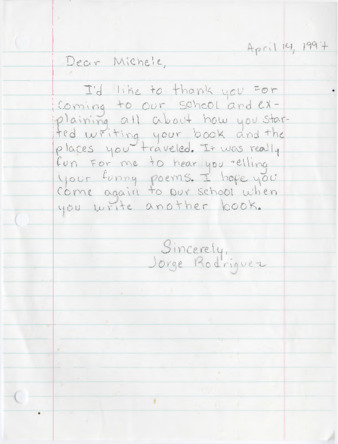 April 14, 1997
Dear Michele,
I'd like to thank you For
coming to our school and ex-
plaining all about how you star-
ted writing your book and the
places you traveled. It was really
fun For me to hear you telling
your funny poems. I hope you
come again to our school when
you write another book.
Sincerely,
Jorge Rodriguez